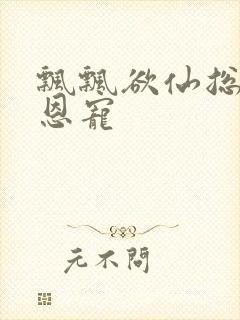 飄飄欲仙総
恩寵
元不問